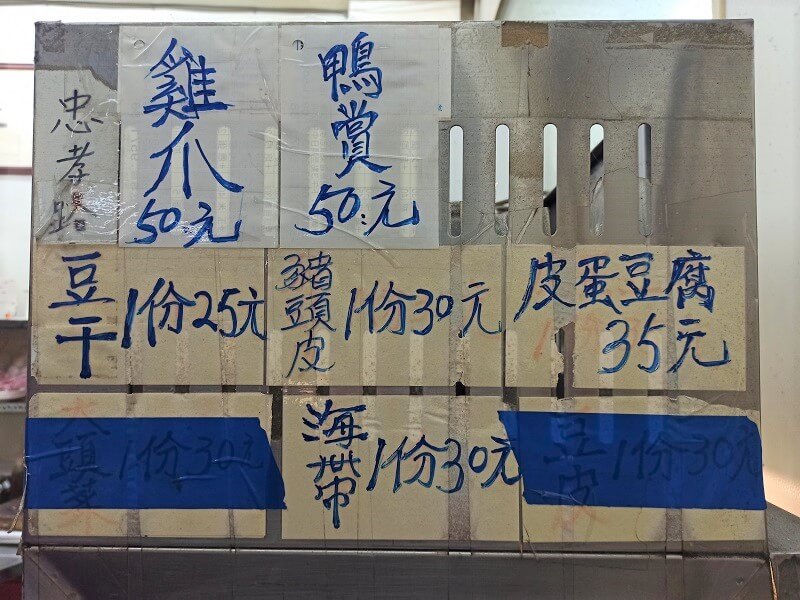 忠孝路
雞爪
50元
鴨賞
50元
豆干 1份25元
豬頭皮 1份30元
皮蛋豆腐
35元
大頭菜 1份30元
海帶 1份30元
豆皮 1份30元